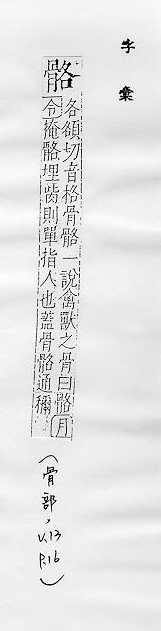 字彙
骼
各頟切音格骨骼一說禽獸之骨曰骼月
令掩骼埋胔則單指人也蓋骨骼通稱
(骨部,V.13
P.16)